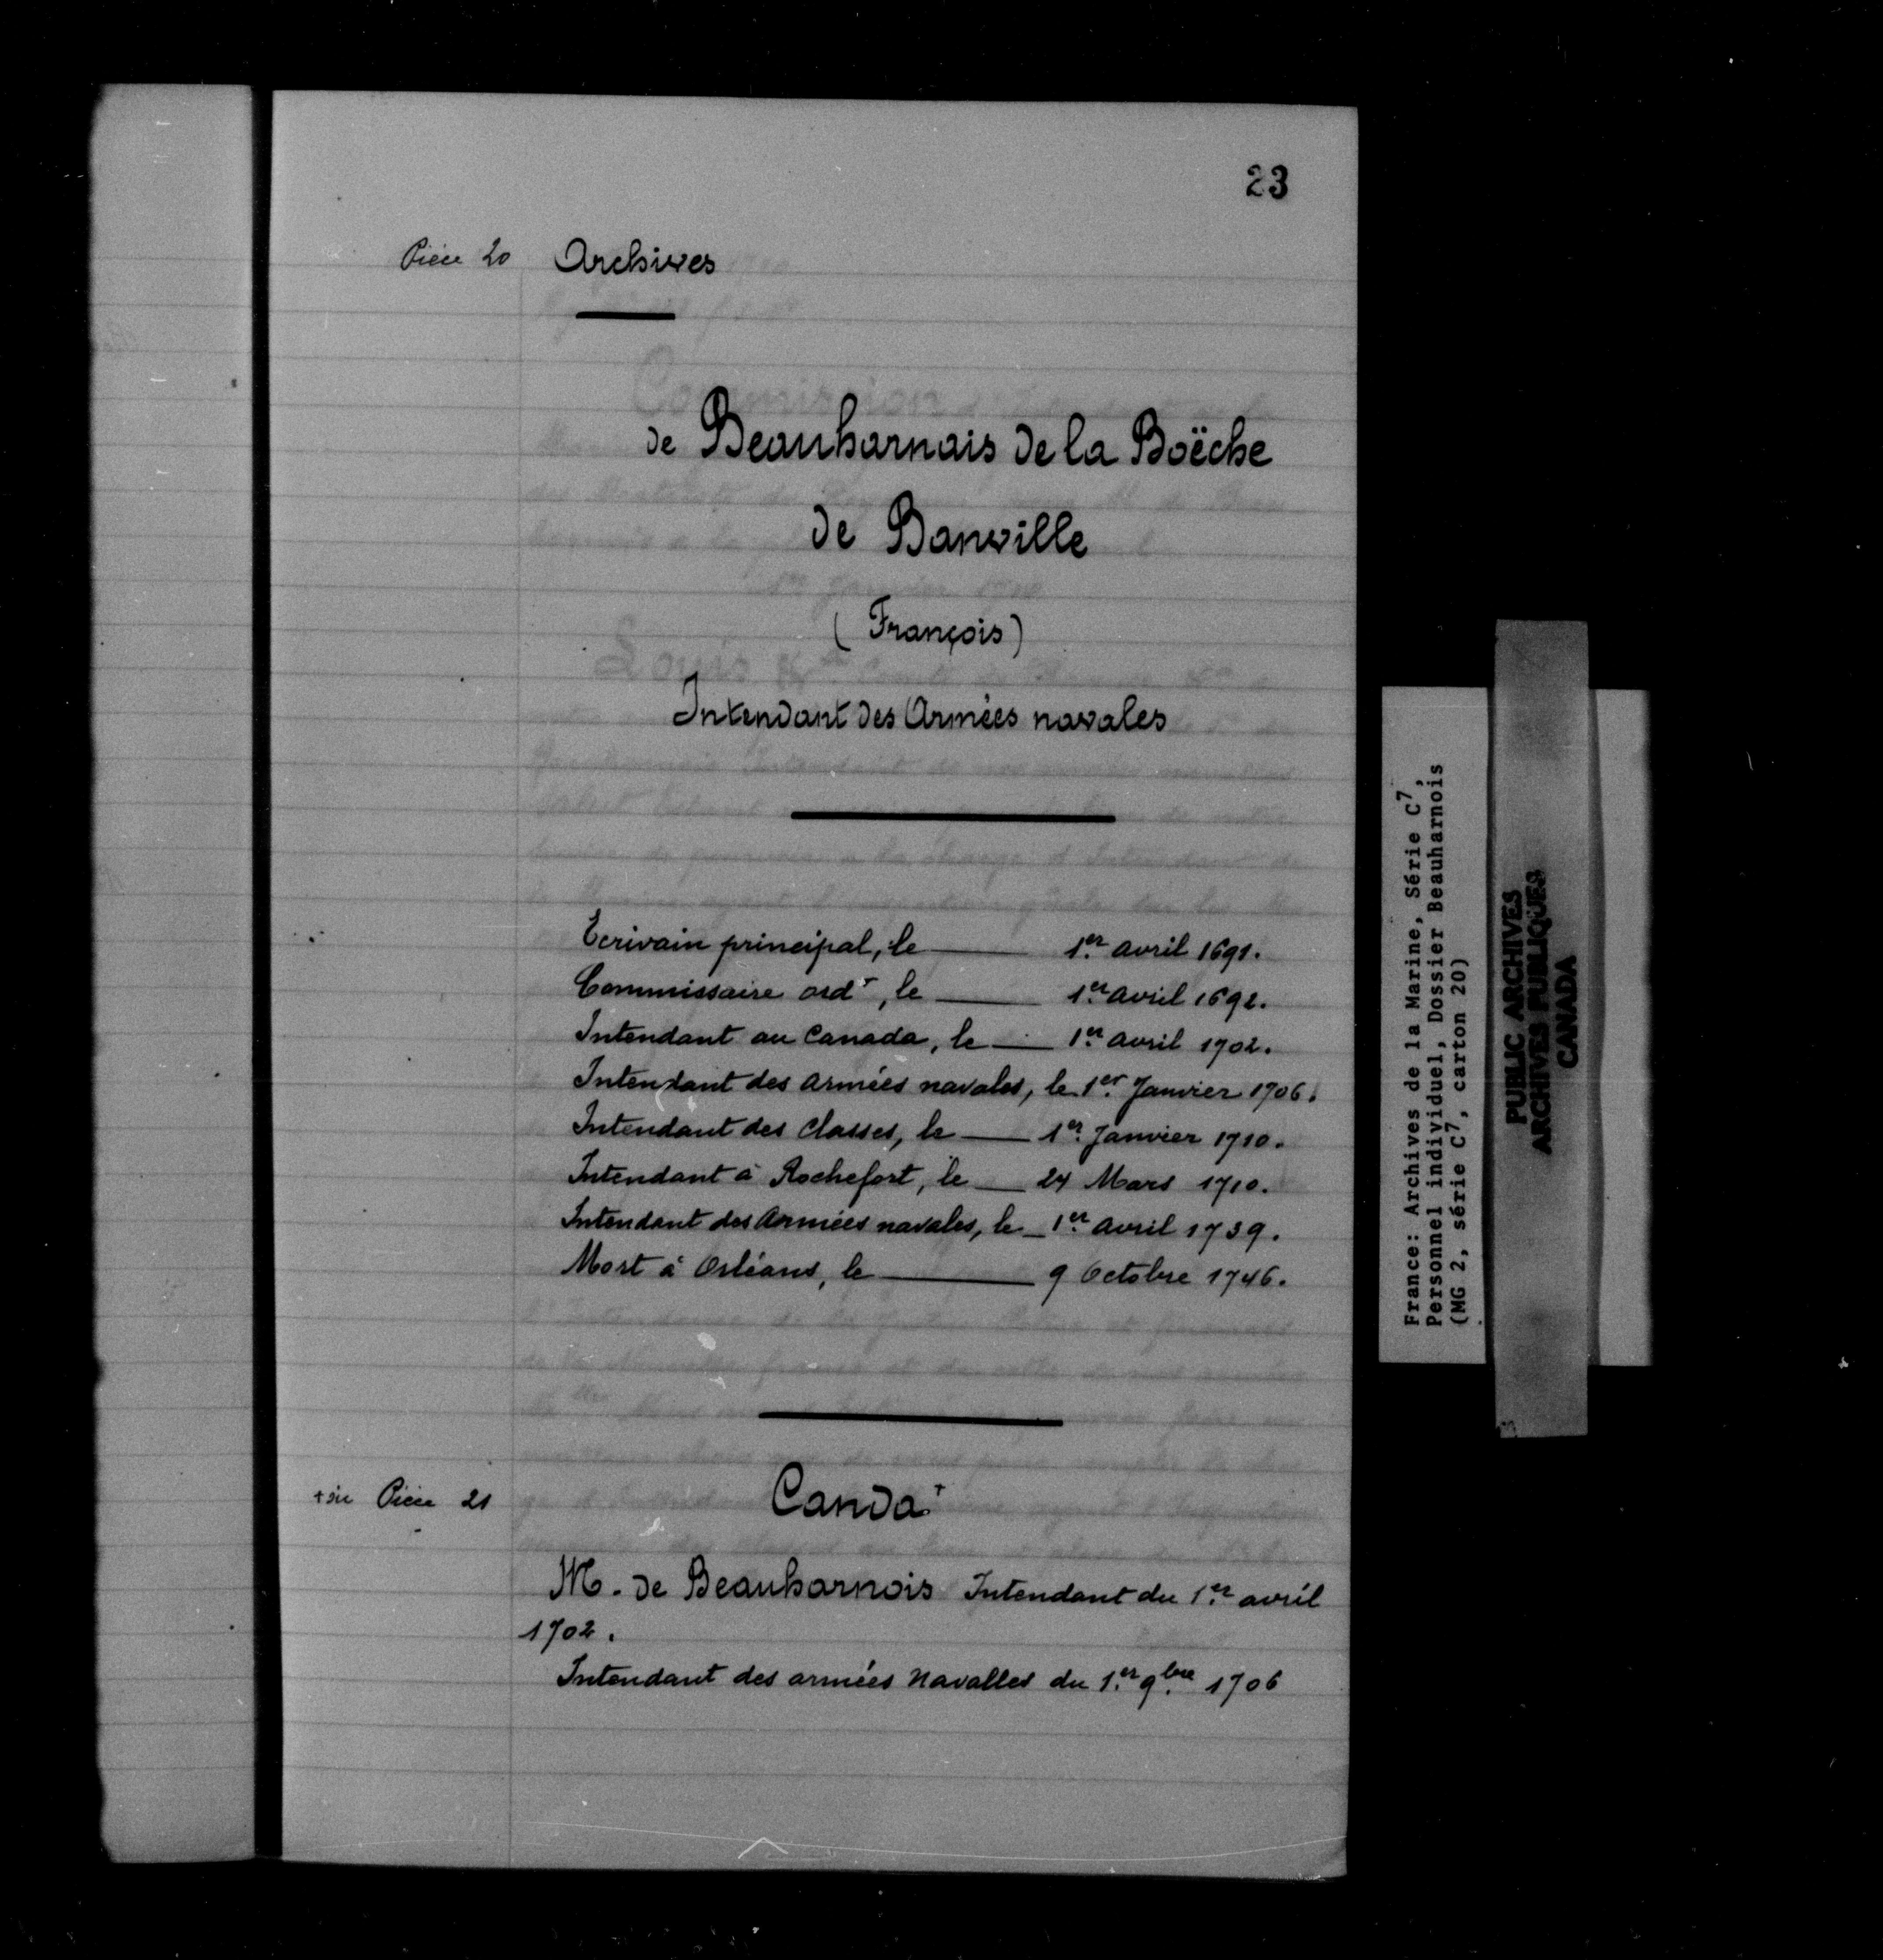 23
Pièce 20 Archives
de Beauharnais de la Boëche
de Banville
(François)
Intendant des Armées navales
Ecrivain principal, le 1er. avril 1691.
Commissaire ordre, le 1er. avril 1692.
Intendant au Canada, le 1er. avril 1702.
Intendant des armées navales, le 1er. Janvier 1706.
Intendant des Classes, le 1er. Janvier 1710.
Intendant à Rochefort, le 24 Mars 1710.
Intendant des Armées navales, le 1er. avril 1739.
Mort à Orléans, le 9 Octobre 1746.
+ sic Pièce 21 Canda +
M. de Beauharnois Intendant du 1er. avril
1702.
Intendant des armées Navalles du 1er. 9bre. 1706
France: Archives de la Marine, Série C7,
Personnel individuel, Dossier Beauharnois
(MG 2, série C7, carton 20)
PUBLIC ARCHIVES
ARCHIVES PUBLIQUES
CANADA